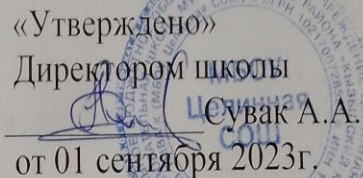 «Утверждено»
Директором школы
Сувак А.А.
от 01 сентября 2023г.
Целинная
СОШ